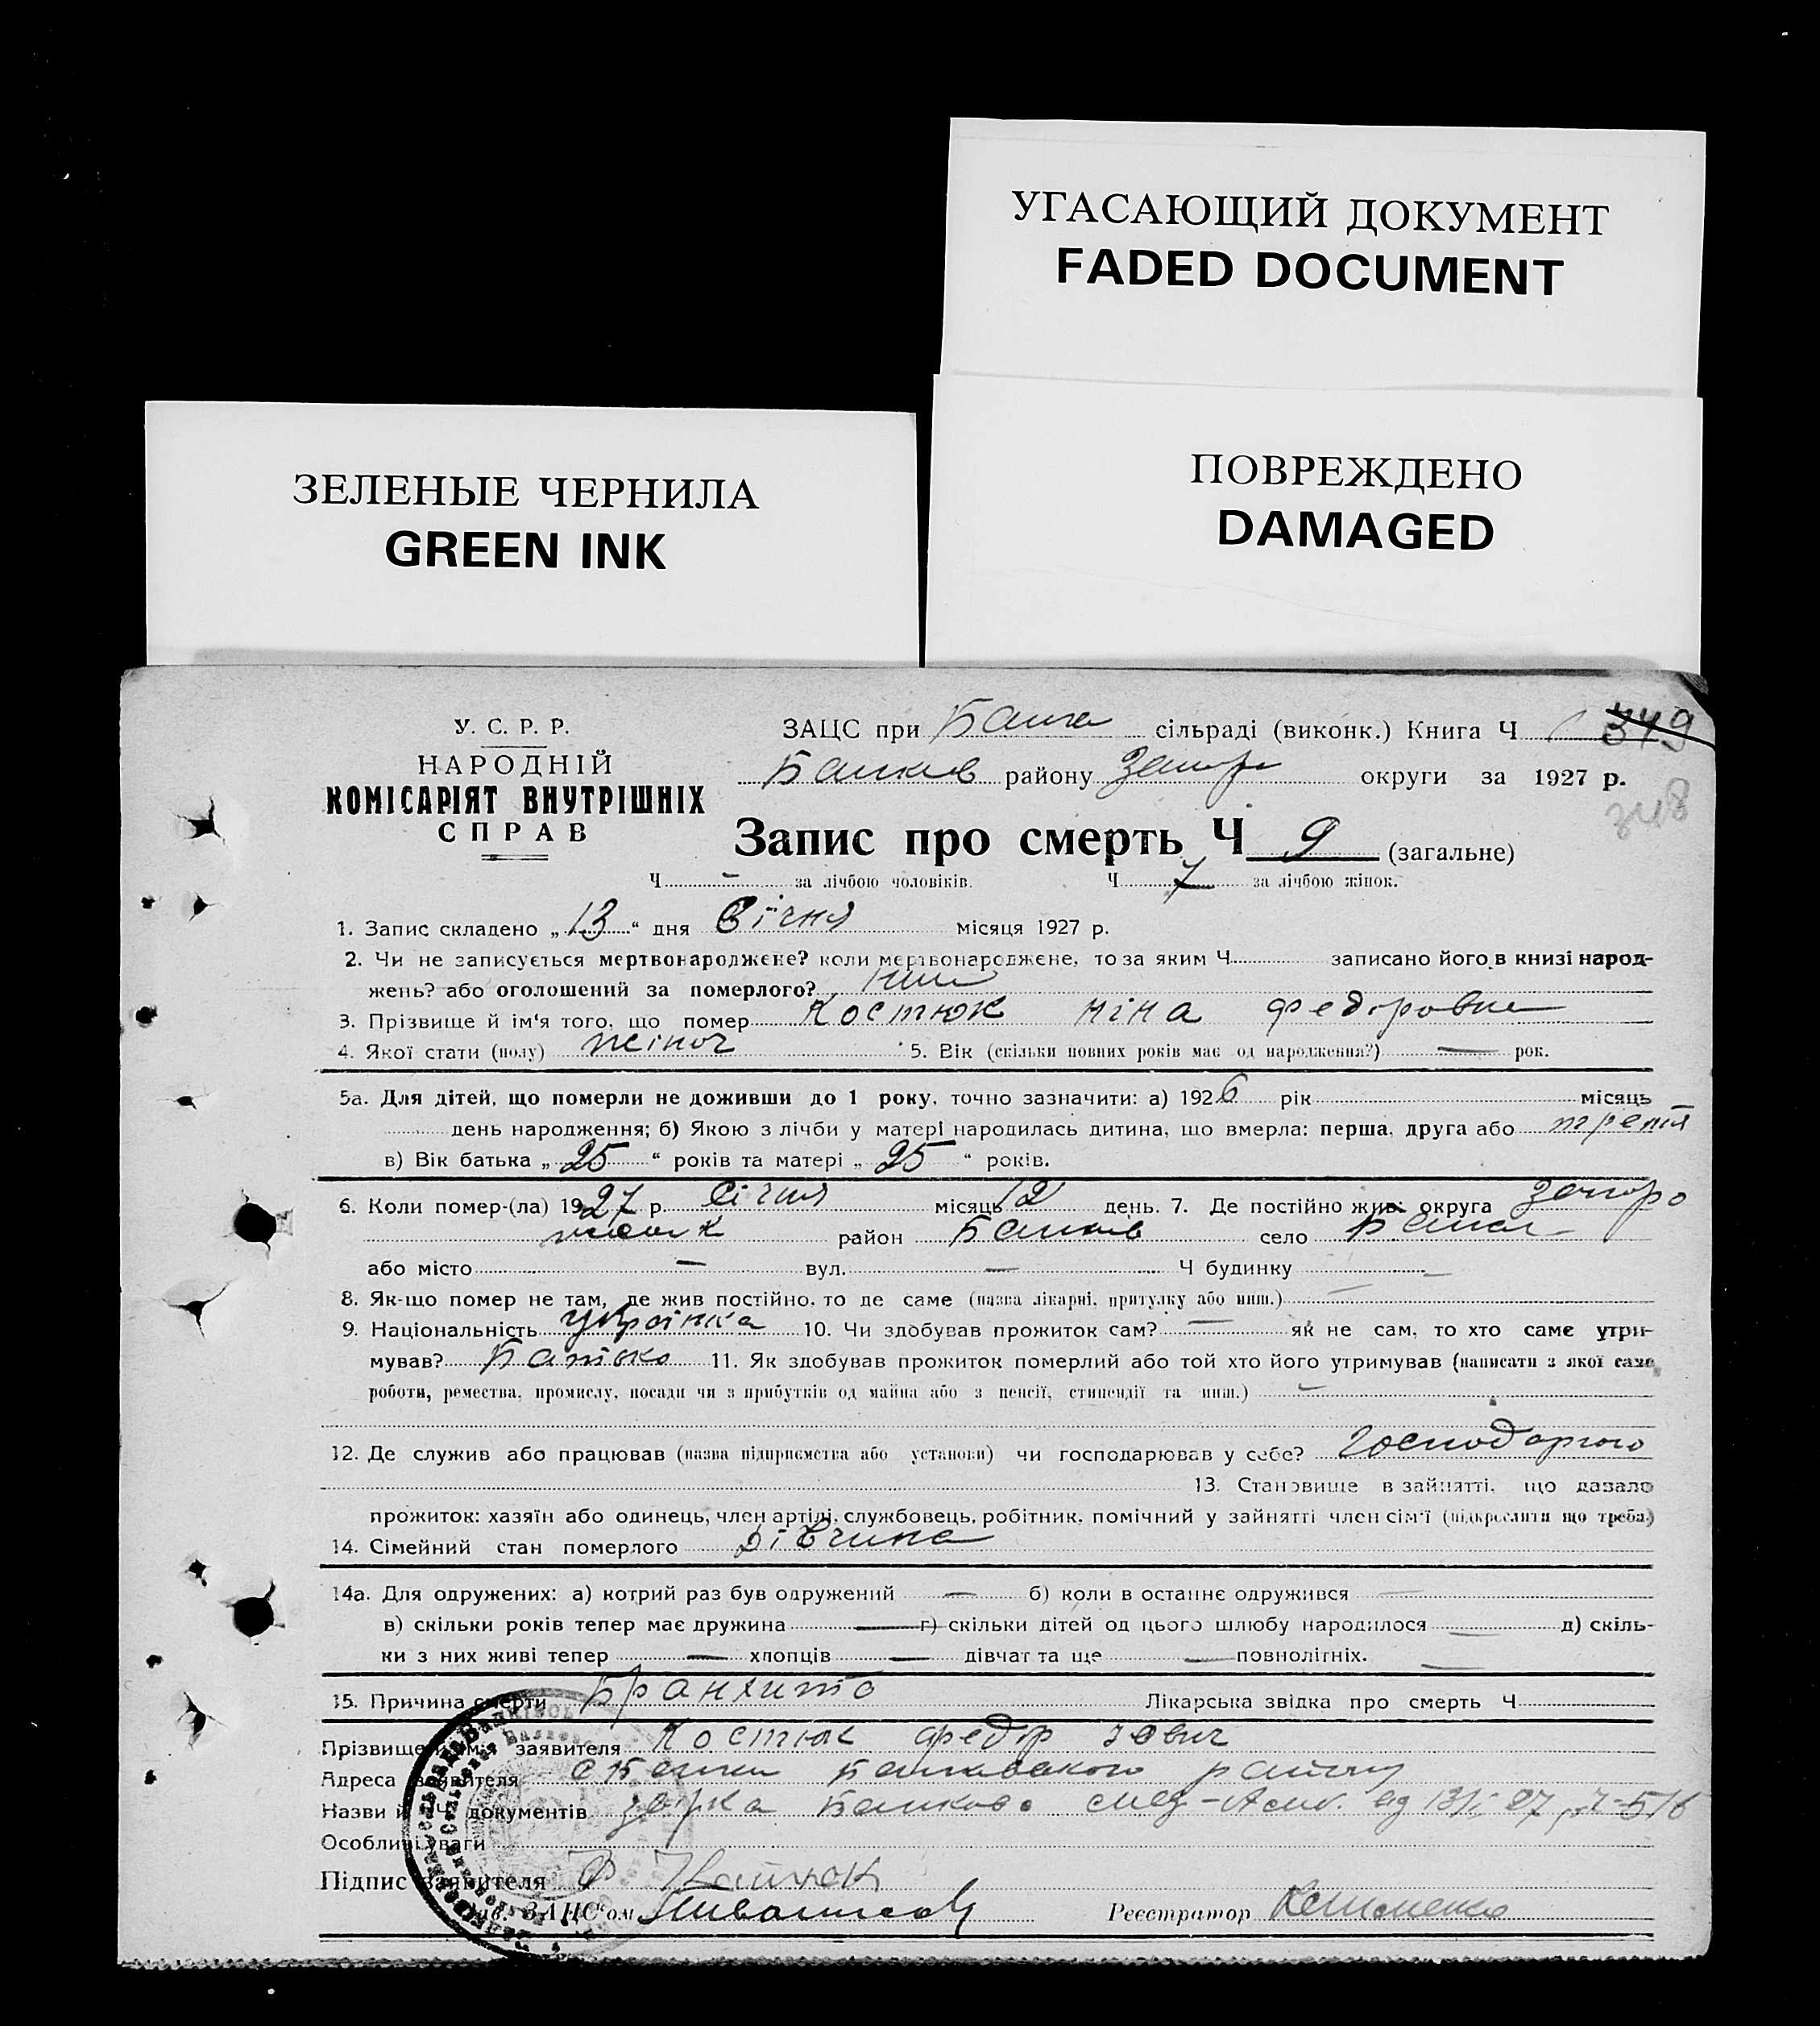 УГАСАЮЩИЙ ДОКУМЕНТ
FADED DOCUMENT
ЗЕЛЕНЫЕ ЧЕРНИЛА
GREEN INK
ПОВРЕЖДЕНО
DAMAGED
У. С. Р. Р.
НАРОДНІЙ
КОМІСАРІЯТ ВНУТРІШНІХ
СПРАВ
ЗАЦС при сільраді (виконк.) Книга Ч 349
району округи за 1927 р.
348
Запис про смерть Ч 9 (загальне)
Ч — за лічбою чоловіків. Ч 7 за лічбою жінок.
1. Запис складено „ 13 “ дня Січня місяця 1927 р.
2. Чи не записується мертвонароджене? коли мертвонароджене, то за яким Ч. записано його в книзі народ-
жень? або оголошений за померлого?
3. Прізвище й ім'я того, що помер Костюк Ніна Федоровна
4. Якої стати (полу) жіноч 5. Вік (скільки повних років має од народження?) — рок.
5а. Для дітей, що померли не доживши до 1 року, точно зазначити: а) 1926 рік місяць
день народження; б) Якою з лічби у матері народилась дитина, що вмерла: перша, друга або третя
в) Вік батька „ 25 “ років та матері „ 25 “ років.
6. Коли помер-(ла) 1927 р. Січня місяць 12 день. 7. Де постійно жив: округа Запоро
район село
або місто — вул. — Ч будинку —
8. Як-що помер не там, де жив постійно, то де саме (назва лікарні, притулку або инш.) —
9. Національність Українка 10. Чи здобував прожиток сам? — як не сам, то хто саме утри-
мував? Батько 11. Як здобував прожиток померлий або той хто його утримував (написати з якої саме
роботи, ремества, промислу, посади чи з прибутків од майна або з пенсії, стипендії та инш.) —
12. Де служив або працював (назва підприємства або установи) чи господарював у себе?
13. Становище в зайнятті, що давало
прожиток: хазяїн або одинець, член артілі, службовець, робітник, помічний у зайнятті член сім'ї (підкреслити що треба)
14. Сімейний стан померлого Дівчина
14а. Для одружених: а) котрий раз був одружений — б) коли в останнє одружився —
в) скільки років тепер має дружина — г) скільки дітей од цього шлюбу народилося — д) скіль-
ки з них живі тепер — хлопців — дівчат та ще — повнолітніх. —
15. Причина смерти Бранхито Лікарська звідка про смерть Ч
Прізвище й ім'я заявителя Костюк Федір
Адреса заявителя району
Назви й Ч документів
Особливі уваги
Підпис заявителя
Зав. ЗАЦС'ом Реєстратор